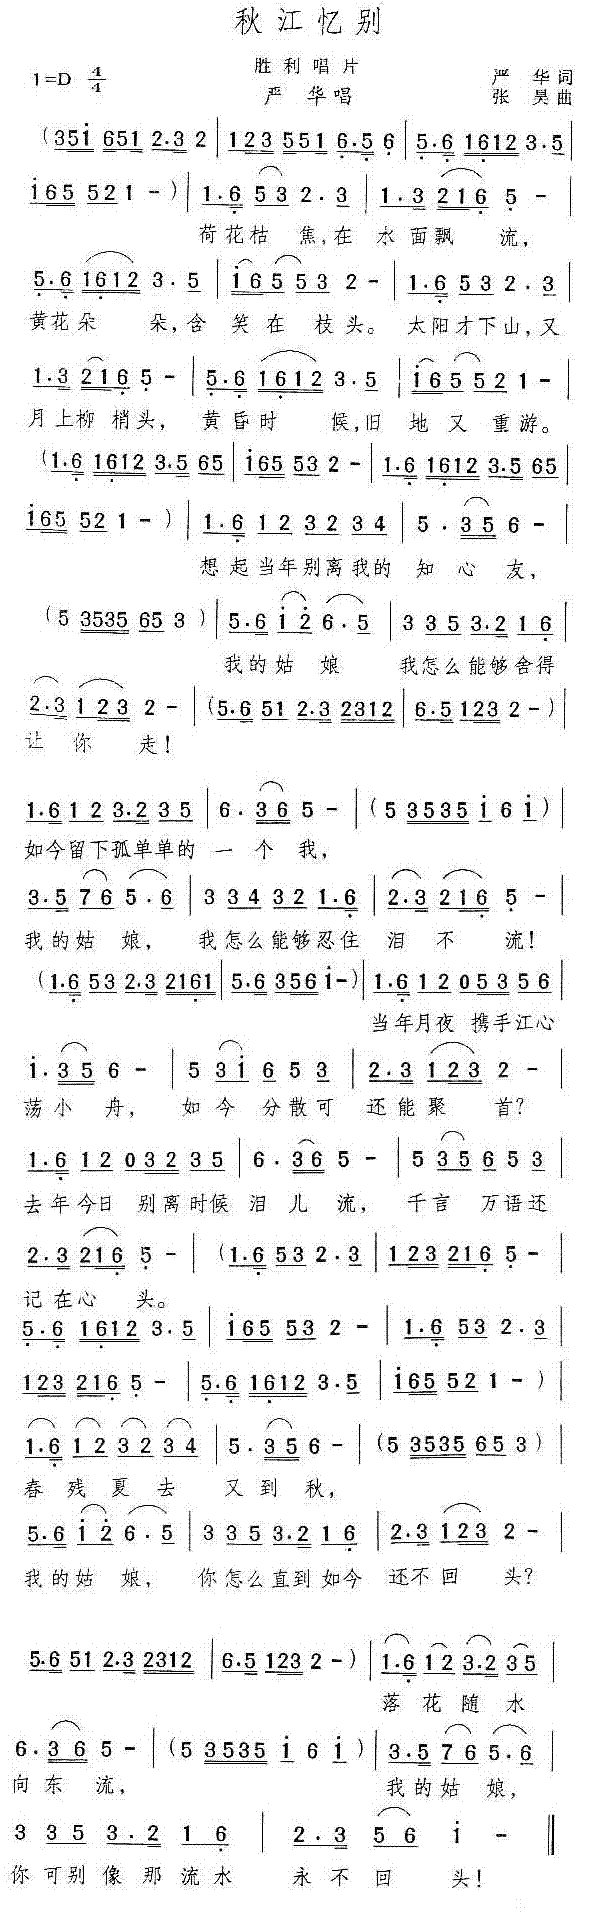 秋江忆别
1=D 4/4
胜利唱片
严 华唱
严 华词
张 昊曲
(351 651 2·3 2 | 123 551 6·5 6 | 5·6 1612 3·5
165 521 - ) | 1·6 53 2·3 | 1·3 216 5 -
荷花枯 焦,在 水面飘 流,
5·6 1612 3·5 | 165 53 2 - | 1·6 53 2·3
黄花朵 朵,含 笑在 枝头。 太阳才下山,又
1·3 216 5 - | 5·6 1612 3·5 | 165 521 -
月上柳 梢头, 黄昏时 候,旧 地又 重游。
(1·6 1612 3·5 65 | 165 53 2 - | 1·6 1612 3·5 65
165 52 1 - ) | 1·6 12 32 34 | 5·35 6 -
想起当年别离我的 知心 友,
(5 3535 65 3 ) | 5·6 12 6·5 | 335 3·2 16
我的姑 娘 我怎么能够舍得
2·3 123 2 - | (5·6 51 2·3 2312 | 6·5 123 2 - ) |
让 你 走!
1·6 12 3·2 35 | 6·36 5 - | (5 3535 1 6 1) |
如今留下孤单单的 一 个 我,
3·5 76 5·6 | 334 32 1·6 | 2·3 216 5 - |
我的姑 娘, 我怎么能够忍住 泪 不 流!
(1·6 53 2·3 2161 | 5·6 356 1 - ) | 1·6 12 053 56 |
当年月夜 携手江心
1·35 6 - | 5 31 65 3 | 2·3 123 2 - |
荡小 舟, 如今 分散可 还能聚 首?
1·6 12 032 35 | 6·36 5 - | 5 35 65 3
去年今日 别离时候 泪儿 流, 千言 万语还
2·3 216 5 - | (1·6 53 2·3 | 123 216 5 - |
记在心 头。
5·6 1612 3·5 | 165 53 2 - | 1·6 53 2·3 |
123 216 5 - | 5·6 1612 3·5 | 165 521 - ) |
1·6 12 32 34 | 5·35 6 - | (5 3535 65 3) |
春残夏去 又到 秋,
5·6 12 6·5 | 335 3·2 16 | 2·3 123 2 - |
我的姑 娘, 你怎么直到如今 还不回 头?
5·6 51 2·3 2312 | 6·5 123 2 - ) | 1·6 12 3·2 35 |
落花随水
6·36 5 - | (5 3535 1 6 1 ) | 3·5 76 5·6 |
向东 流, 我的姑 娘,
3 35 3·2 16 | 2·3 56 1 - ‖
你可别像那流水 永不回 头!